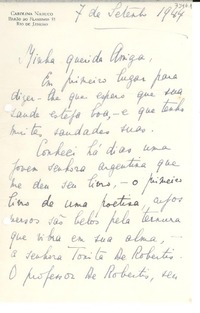 CAROLINA NABUCO
RIO DE JANEIRO
7 de Setembro 1949
Minha querida Amiga,
Em primeiro lugar para
dizer-lhe que espero que sua
saude esteja boa, e que tenho
muitas saudades suas.
Conheci há dias uma
jovem senhora argentina que
me deu seu livro, — o primeiro
livro de uma poetisa, cujos
versos são belos pela ternura
que vibra em sua alma, —
a senhora Tonita De Robertis.
O professor De Robertis, seu